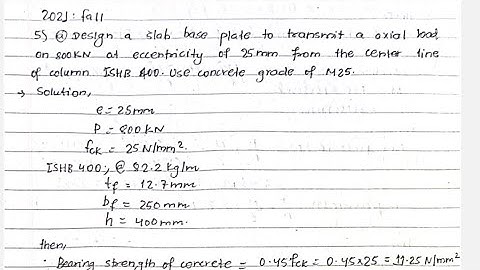 2021: fall
5) ⓐ Design a slab base plate to transmit a axial load
on 800KN at eccentricity of 25mm from the center line
of column ISHB 400. Use concrete grade of M25.
→ Solution,
e = 25mm
P = 800KN
fck = 25N/mm².
ISHB 400; @ 82.2 kg/m
tf = 12.7mm
bf = 250mm
h = 400mm.
then,
• Bearing strength of concrete = 0.45fck = 0.45x25 = 11.25N/mm²